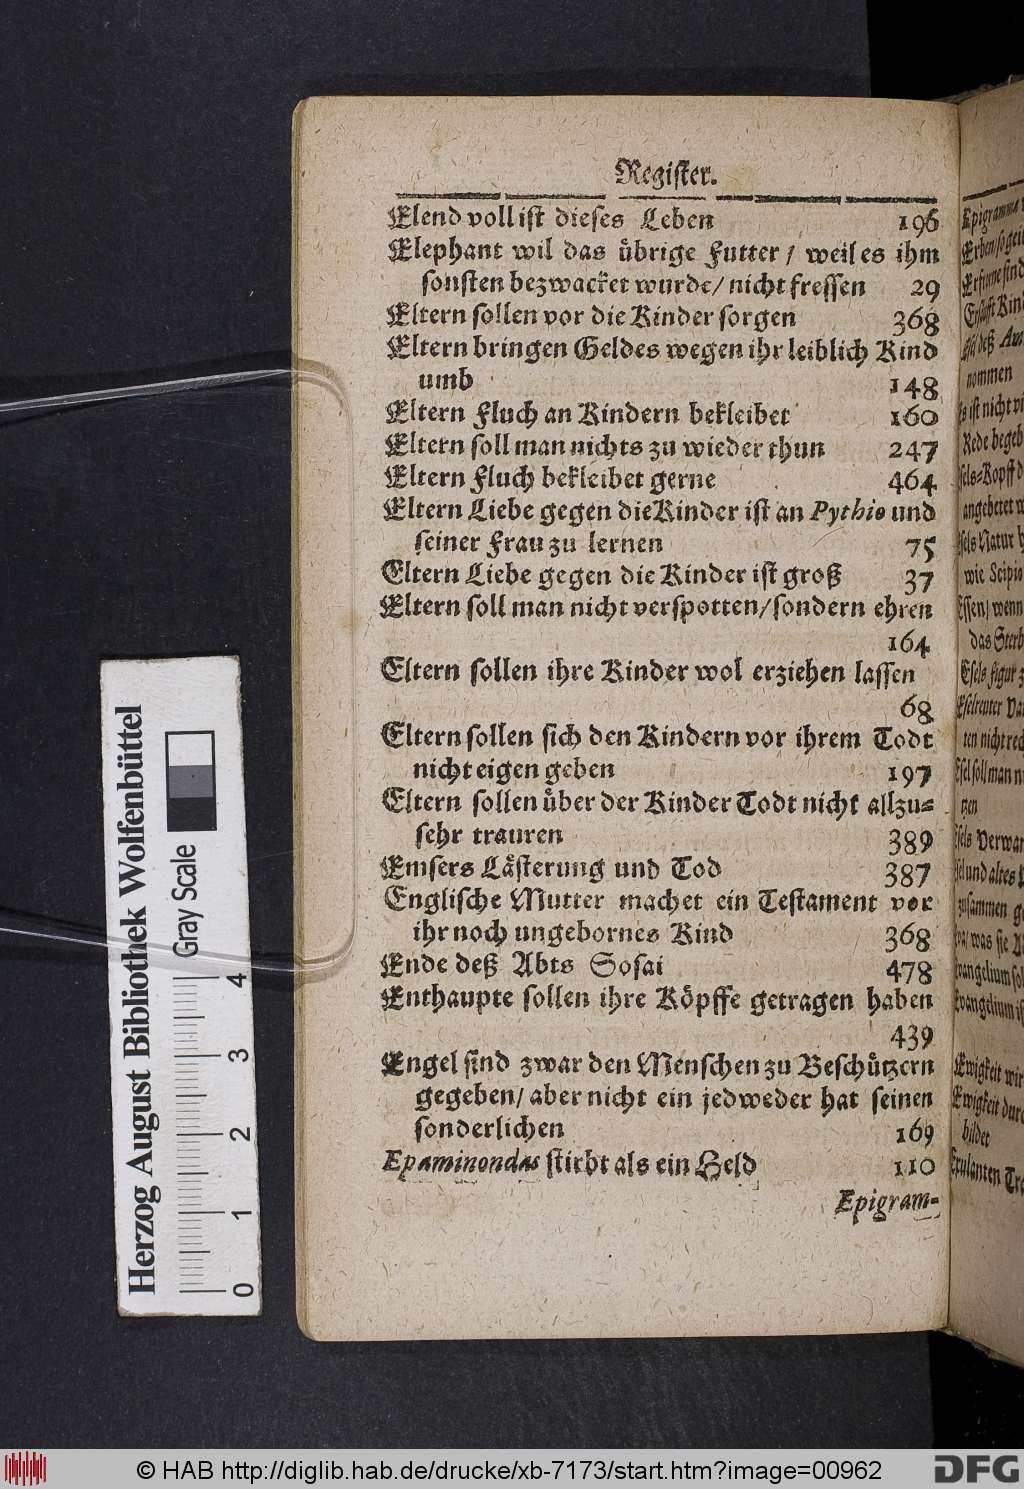 Register.
Elend voll ist dieses Leben 196
Elephant wil das übrige Futter / weil es ihm
sonsten bezwacket wurde / nicht fressen 29
Eltern sollen vor die Kinder sorgen 368
Eltern bringen Geldes wegen ihr leiblich Kind
umb 148
Eltern Fluch an Kindern bekleibet 160
Eltern soll man nichts zu wieder thun 247
Eltern Fluch bekleibet gerne 464
Eltern Liebe gegen die Kinder ist an Pythio und
seiner Frau zu lernen 75
Eltern Liebe gegen die Kinder ist groß 37
Eltern soll man nicht verspotten / sondern ehren
164
Eltern sollen ihre Kinder wol erziehen lassen
68
Eltern sollen sich den Kindern vor ihrem Todt
nicht eigen geben 197
Eltern sollen über der Kinder Todt nicht allzu=
sehr trauren 389
Emsers Lästerung und Tod 387
Englische Mutter machet ein Testament vor
ihr noch ungebornes Kind 368
Ende deß Abts Sosai 478
Enthaupte sollen ihre Köpffe getragen haben
439
Engel sind zwar den Menschen zu Beschützern
gegeben / aber nicht ein jedweder hat seinen
sonderlichen 169
Epaminondas stirbt als ein Held 110
Epigram=
Epigramma
nommen
ist nicht
Rede begeb
angebetet
wie Scipio
Essen / wenn
das Sterb
zusammen
Ewigkeit wir
Ewigkeit durc
bildet
Exulanten
Herzog August Bibliothek Wolfenbüttel
Gray Scale
0 1 2 3 4
© HAB http://diglib.hab.de/drucke/xb-7173/start.htm?image=00962
DFG